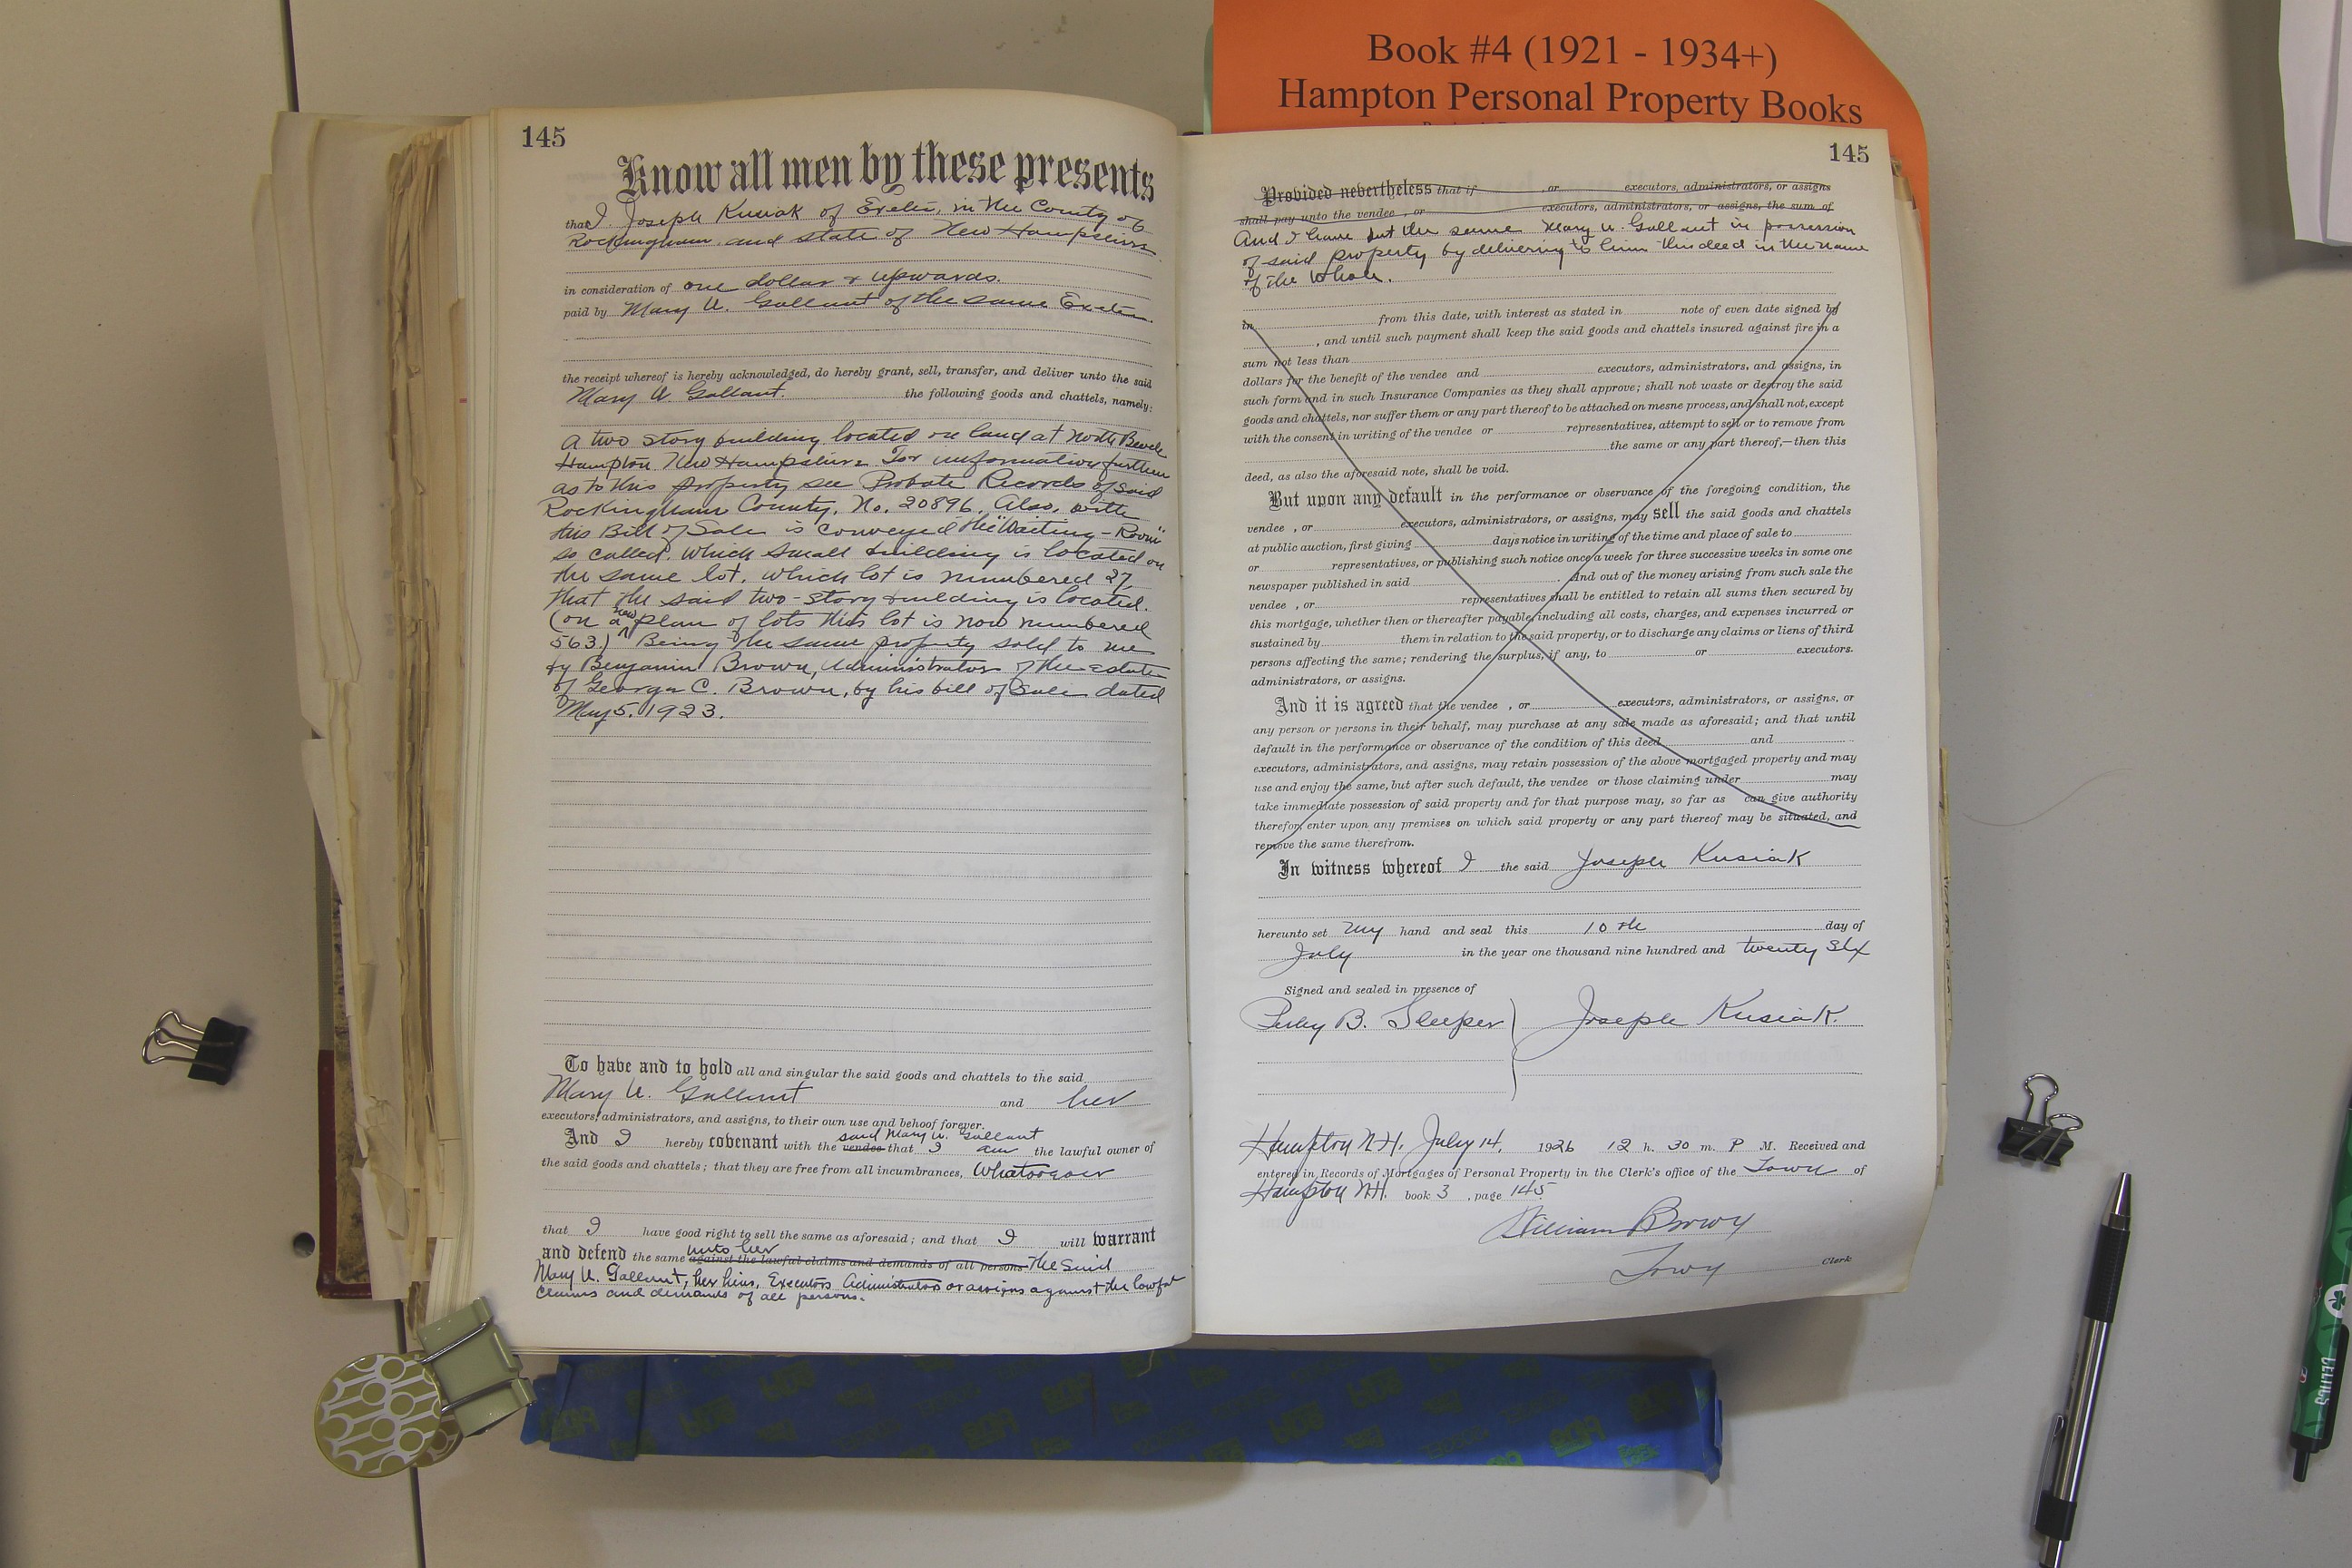 Book #4 (1921 - 1934+)
Hampton Personal Property Books
145
Know all men by these presents
that I Joseph Kusiak of Exeter, in the County of
Rockingham and state of New Hampshire
in consideration of one dollar & upwards.
paid by Mary U. Gallant of the same Exeter.
the receipt whereof is hereby acknowledged, do hereby grant, sell, transfer, and deliver unto the said
Mary U Gallant. the following goods and chattels, namely:
A two story building located on land at North Beach
Hampton New Hampshire For information further
as to this property see Probate Records of said
Rockingham County. No. 20896. Also, with
this Bill of Sale is conveyed the "Waiting-Room"
so called. Which small building is located on
the same lot, which lot is numbered 27,
that the said two-story building is located.
(on a new plan of lots this lot is now numbered
563) Being the same property sold to me
by Benjamin Brown, Administrator of the estate
of George C. Brown, by his bill of sale dated
May 5. 1923.
To have and to hold all and singular the said goods and chattels to the said
Mary U. Gallant and her
executors, administrators, and assigns, to their own use and behoof forever.
said Mary U. Gallant
And I hereby covenant with the vendee that I am the lawful owner of
the said goods and chattels; that they are free from all incumbrances, Whatsoever
that I have good right to sell the same as aforesaid; and that I will warrant
unto her
and defend the same against the lawful claims and demands of all persons The Said
Mary U. Gallant, her heirs, Executors Administrators or assigns against the lawful
claims and demands of all persons.
145
Provided nevertheless that if , or executors, administrators, or assigns
shall pay unto the vendee , or executors, administrators, or assigns, the sum of
And I have put the same Mary U. Gallant in possession
of said property by delivering to him this deed in the name
of the whole.
in from this date, with interest as stated in note of even date signed by
, and until such payment shall keep the said goods and chattels insured against fire in a
sum not less than
dollars for the benefit of the vendee and executors, administrators, and assigns, in
such form and in such Insurance Companies as they shall approve; shall not waste or destroy the said
goods and chattels, nor suffer them or any part thereof to be attached on mesne process, and shall not, except
with the consent in writing of the vendee or representatives, attempt to sell or to remove from
the same or any part thereof,—then this
deed, as also the aforesaid note, shall be void.
But upon any default in the performance or observance of the foregoing condition, the
vendee , or executors, administrators, or assigns, may sell the said goods and chattels
at public auction, first giving days notice in writing of the time and place of sale to
or representatives, or publishing such notice once a week for three successive weeks in some one
newspaper published in said . And out of the money arising from such sale the
vendee , or representatives shall be entitled to retain all sums then secured by
this mortgage, whether then or thereafter payable, including all costs, charges, and expenses incurred or
sustained by them in relation to the said property, or to discharge any claims or liens of third
persons affecting the same; rendering the surplus, if any, to or executors.
administrators, or assigns.
And it is agreed that the vendee , or executors, administrators, or assigns, or
any person or persons in their behalf, may purchase at any sale made as aforesaid; and that until
default in the performance or observance of the condition of this deed and
executors, administrators, and assigns, may retain possession of the above mortgaged property and may
use and enjoy the same, but after such default, the vendee or those claiming under may
take immediate possession of said property and for that purpose may, so far as can give authority
therefor, enter upon any premises on which said property or any part thereof may be situated, and
remove the same therefrom.
In witness whereof I the said Joseph Kusiak
hereunto set my hand and seal this 10 th day of
July in the year one thousand nine hundred and twenty Six
Signed and sealed in presence of
Perley B. Sleeper Joseph Kusiak.
Hampton N.H. July 14, 1926 12 h. 30 m. P M. Received and
entered in Records of Mortgages of Personal Property in the Clerk's office of the Town of
Hampton N.H. book 3 , page 145
William Brown
Town Clerk